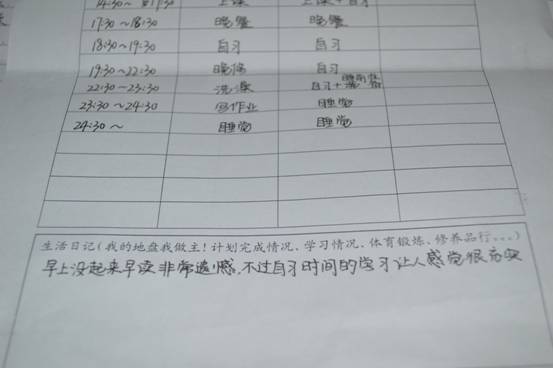 14:30~ 17:30 上课 上课+自习
17:30~18:30 晚餐 晚餐
18:30~19:30 自习 自习
19:30~22:30 晚修 自习
22:30~23:30 洗澡 自习+
23:30~24:30 写作业 睡觉
24:30~ 睡觉 睡觉
生活日记(我的地盘我做主!计划完成情况、学习情况、体育锻炼、修养品行……)
早上没起来早读非常遗憾,不过自习时间的学习让人感觉很充实